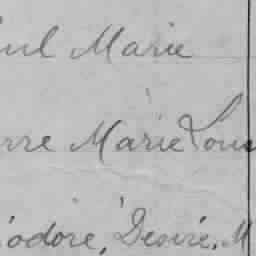 ul Marie
rre Marie Louis
éodore, Désiré, M